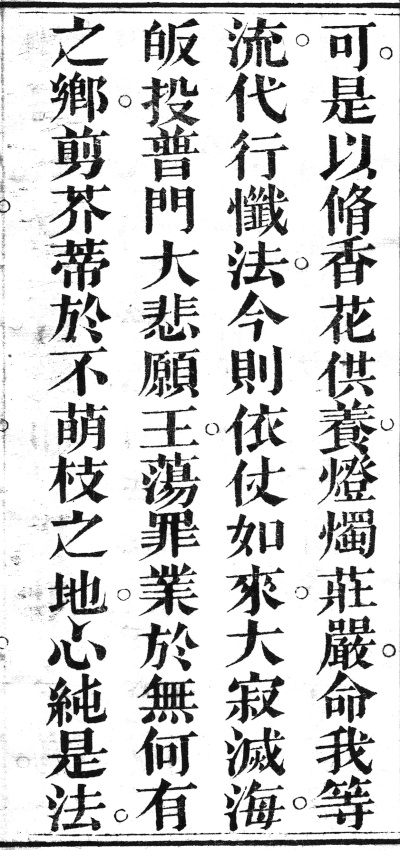 可是以脩香花供養燈燭莊嚴命我等
流代行懺法今則依仗如來大寂滅海
皈投普門大悲願王蕩罪業於無何有
之鄉剪芥蒂於不萌枝之地心純是法